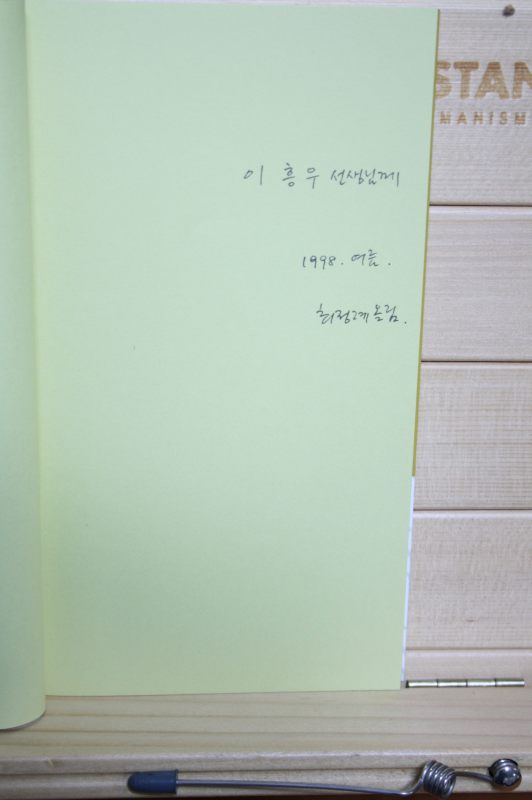 STAN
MANISM
이 흥 우 선생님께
1998. 여름.
최정례 올림.